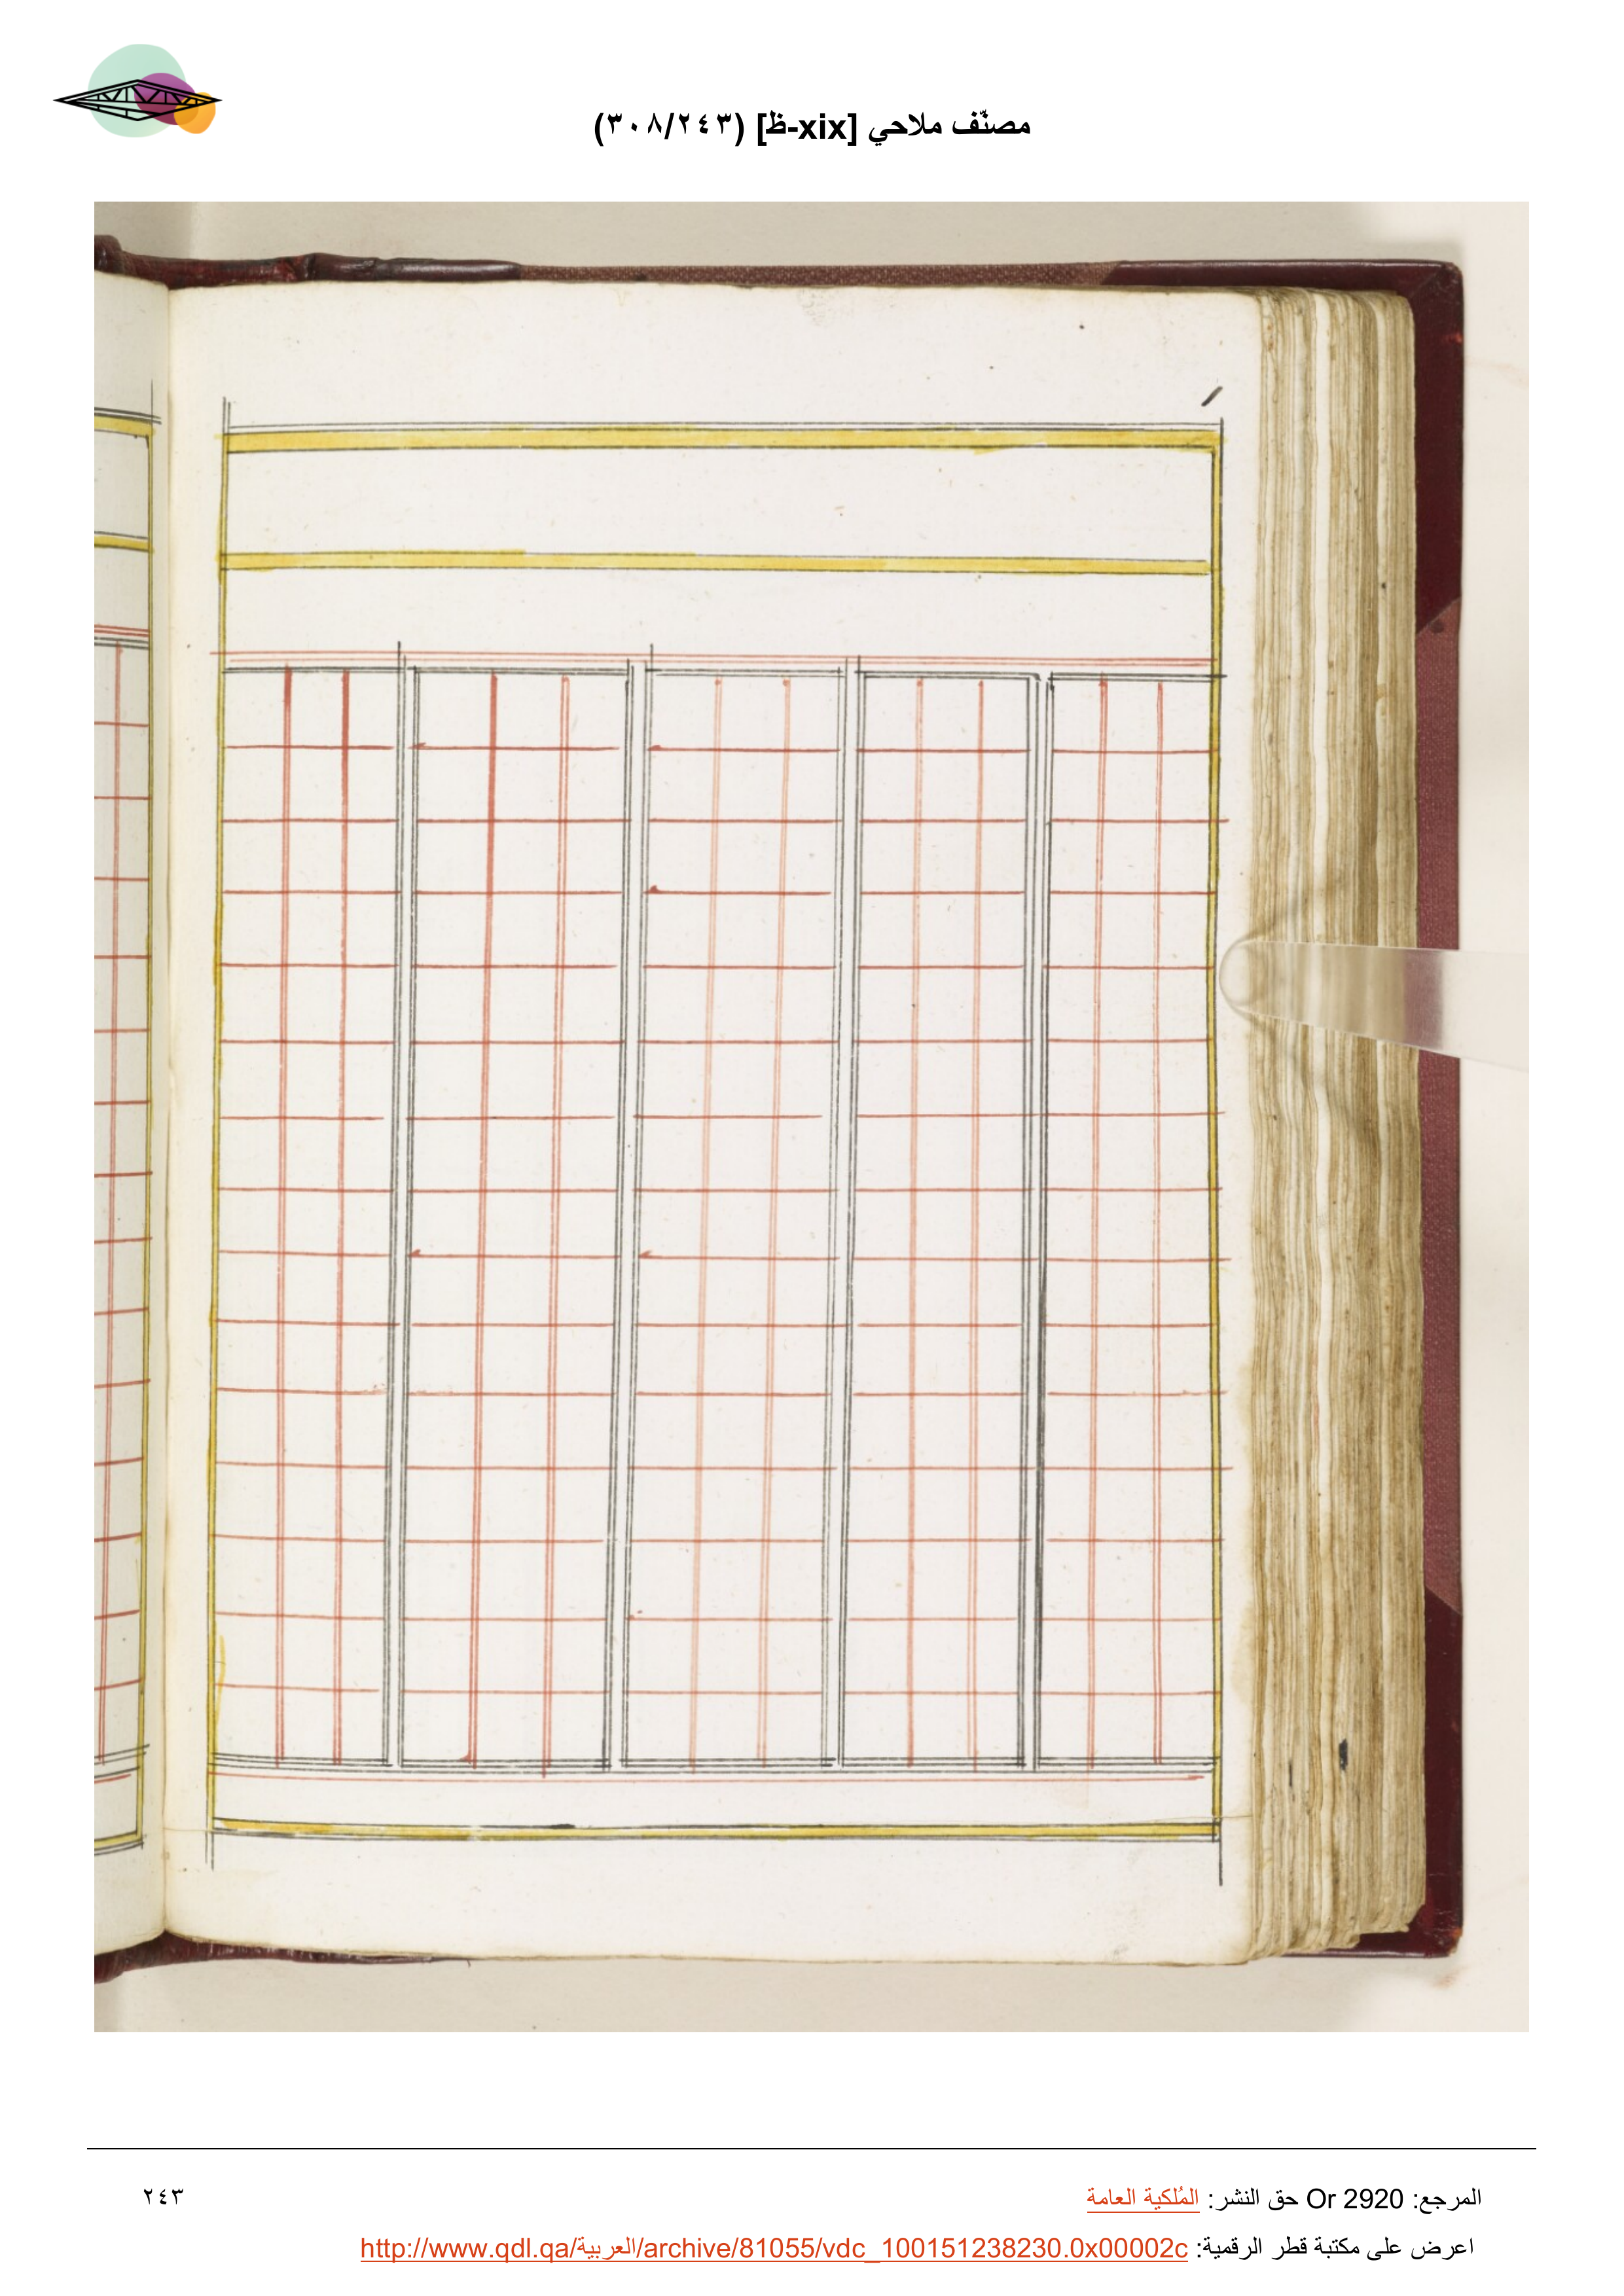 مصنّف ملاحي [xix-ظ] (٣٠٨/٢٤٣)
المرجع: Or 2920 حق النشر: المُلكية العامة
٢٤٣
اعرض على مكتبة قطر الرقمية: http://www.qdl.qa/العربية/archive/81055/vdc_100151238230.0x00002c